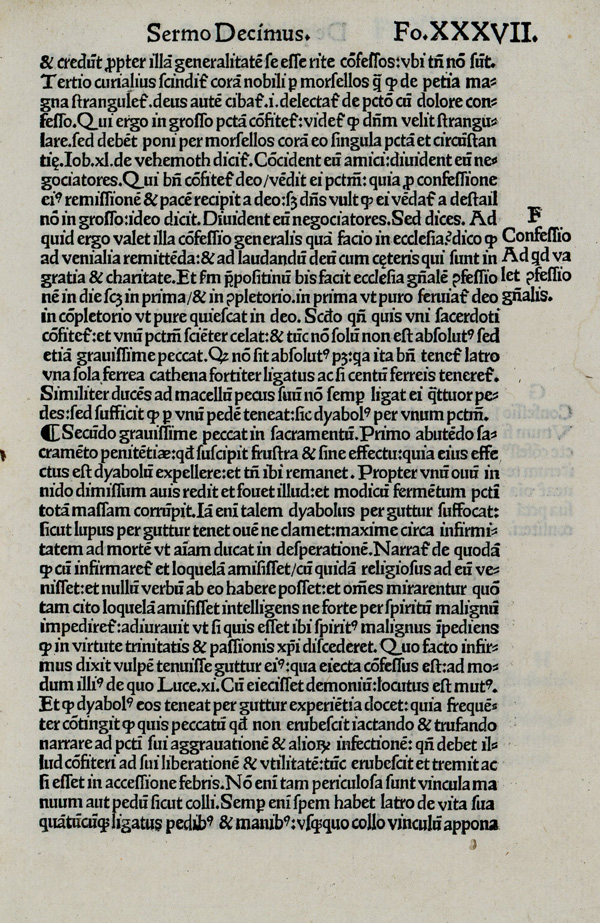 Sermo Decimus. Fo.XXXVII.
& credūt ꝓpter illā generalitatē se esse rite cōfessos:vbi tñ nō sūt.
Tertio curialius scindit᷑ corā nobili ꝑ morsellos q̄ ꝙ de petia ma⸗
gna strangulet᷑.deus autē cibat᷑.i.delectat᷑ de pctō cū dolore con⸗
fesso.Qui ergo in grosso pctā cōfitet᷑:videt᷑ ꝙ dñm velit strangu⸗
lare.sed debēt poni per morsellos corā eo singula pctā et circūstan
tię.Iob.xl.de vehemoth dicit᷑.Cōcident eū amici:diuident eū ne⸗
gociatores.Qui bñ cōfitet᷑ deo/vēdit ei pctm̄: quia ꝓ confessione
eiꝰ remissionē & pacē recipit a deo:sꝫ dñs vult ꝙ ei vēdat᷑ a destail
nō in grosso:ideo dicit. Diuident eū negociatores.Sed dices. Ad
quid ergo valet illa cōfessio generalis quā facio in ecclesia?dico ꝙ
ad venialia remittēda:& ad laudandū deū cum cęteris qui sunt in
gratia & charitate.Et s̄m p̄positinū bis facit ecclesia gñalē ꝯfessio
nē in die scꝫ in prima/& in ꝯpletorio.in prima vt puro seruiat᷑ deo
in cōpletorio vt pure quiescat in deo. Scd̄o qñ quis vni sacerdoti
cōfitet᷑:et vnū pctm̄ sciēter celat:& tūc nō solū non est absolutꝰ sed
etiā grauissime peccat.Qꝫ nō sit absolutꝰ pꝫ:qa ita bñ tenet᷑ latro
vna sola ferrea cathena fortiter ligatus ac si centū ferreis teneret᷑.
Similiter ducēs ad macellū pecus suū nō semꝑ ligat ei q̄ttuor pe⸗
des:sed sufficit ꝙ ꝑ vnū pedē teneat:sic dyabolꝰ per vnum pctm̄.
¶ Secūdo grauissime peccat in sacramentū.Primo abutēdo sa⸗
cramēto penitētiæ:qd̄ suscipit frustra & sine effectu:quia eius effe
ctus est dyabolū expellere:et tñ ibi remanet. Propter vnū ouū in
nido dimissum auis redit et fouet illud:et modicū fermētum pcti
totā massam corrūpit.Iā eni talem dyabolus per guttur suffocat:
sicut lupus per guttur tenet ouē ne clamet:maxime circa infirmi⸗
tatem ad mortē vt aīam ducat in desperationē.Narrat᷑ de quodā
ꝙ cū infirmaret᷑ et loquelā amisisset/cū quidā religiosus ad eū ve⸗
nisset:et nullū verbū ab eo habere posset:et om̄es mirarentur quō
tam cito loquelā amisisset intelligens ne forte per spiritū malignū
impediret᷑:adiurauit vt si quis esset ibi spiritꝰ malignus īpediens
ꝙ in virtute trinitatis & passionis xp̄i discederet. Quo facto infir⸗
mus dixit vulpē tenuisse guttur eiꝰ:qua eiecta cōfessus est:ad mo⸗
dum illiꝰ de quo Luce.xi.Cū eiecisset demoniū:locutus est mutꝰ.
Et ꝙ dyabolꝰ eos teneat per guttur experiētia docet:quia frequē⸗
ter cōtingit ꝙ quis peccatū qd̄ non erubescit iactando & trufando
narrare ad pcti sui aggrauationē & alioꝝ infectionē: qñ debet il⸗
lud cōfiteri ad sui liberationē & vtilitatē:tūc erubescit et tremit ac
si esset in accessione febris.Nō eni tam periculosa sunt vincula ma
nuum aut pedū sicut colli.Semꝑ eni spem habet latro de vita sua
quātūcūqꝫ ligatus pedibꝰ & manibꝰ:vsqꝫquo collo vinculū appona
F
Confessio
Ad qd va
let ꝯfessio
gñalis.